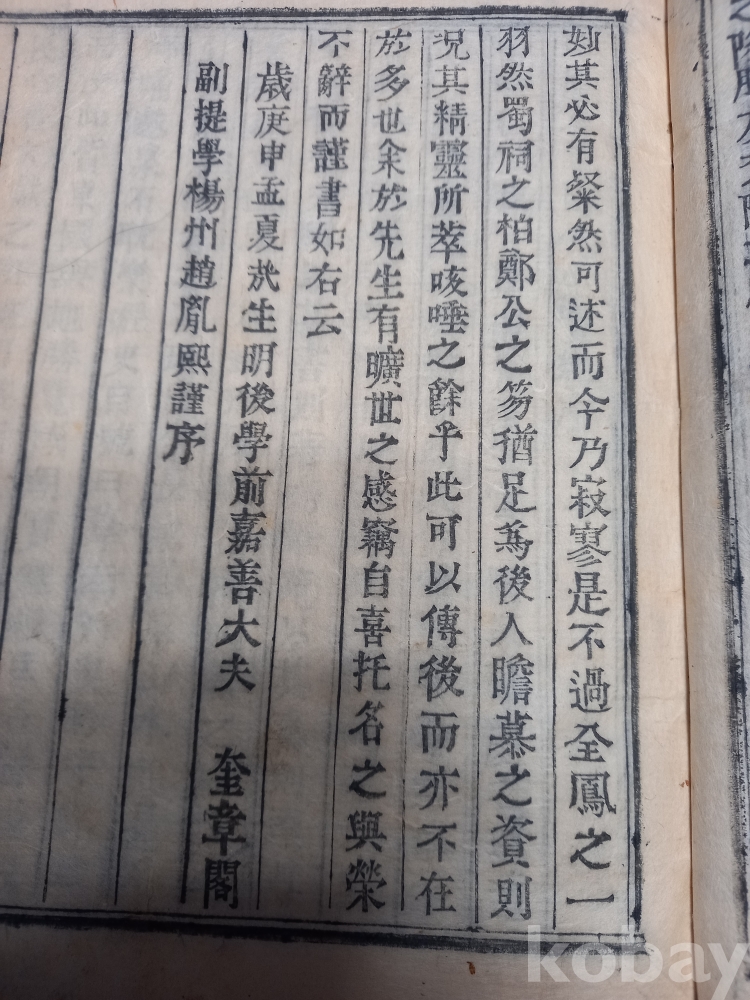 妙其必有粲然可述而今乃寂寥是不過全鳳之一
羽然蜀祠之柏鄭公之笏猶足爲後人瞻慕之資則
况其精靈所萃咳唾之餘乎此可以傳後而亦不在
於多也余於先生有曠世之感竊自喜托名之與榮
不辭而謹書如右云
歲庚申孟夏哉生明後學前嘉善大夫 奎章閣
副提學楊州趙胤熙謹序
kobay